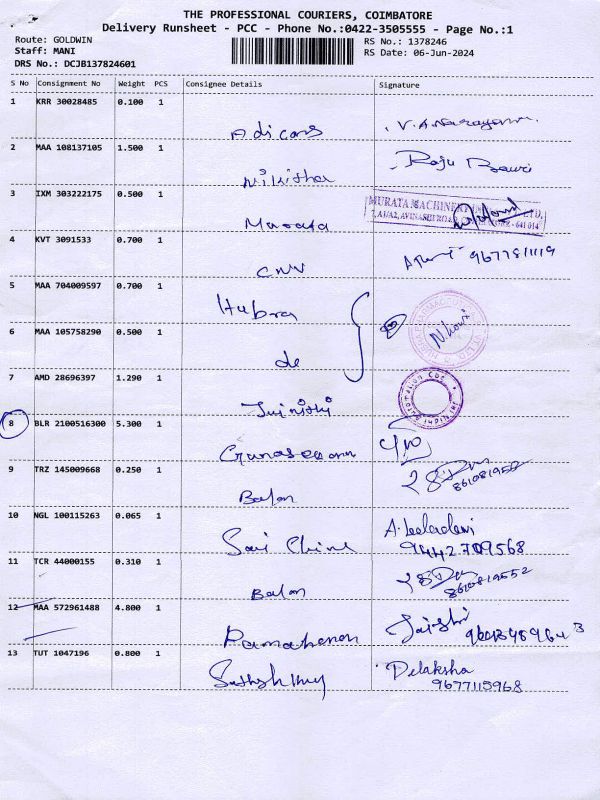 THE PROFESSIONAL COURIERS, COIMBATORE
Delivery Runsheet - PCC - Phone No.:0422-3505555 - Page No.:1
Route: GOLDWIN
Staff: MANI
DRS No.: DCJB137824601
RS No.: 1378246
RS Date: 06-Jun-2024
S No Consignment No Weight PCS Consignee Details Signature
1 KRR 30028485 0.100 1
Adicons V.A.Narayanan
2 MAA 108137105 1.500 1
Nikitha Raju Bauri
3 IXM 303222175 0.500 1
Murata MURATA MACHINERY LTD.
4 KVT 3091533 0.700 1
CNV 9677811119
5 MAA 704009597 0.700 1
Hubra
6 MAA 105758290 0.500 1
do Nhouri
7 AMD 28696397 1.290 1
Jai nidhi
8 BLR 2100516300 5.300 1
Gunaseelan
9 TRZ 145009668 0.250 1
Balan 8610819552
10 NGL 100115263 0.065 1
Sai Chine A.Leeladevi
9442709568
11 TCR 44000155 0.310 1
Balan 8610819552
12 MAA 572961488 4.800 1
Jaishri
13 TUT 1047196 0.800 1
Delaksha
9677115968